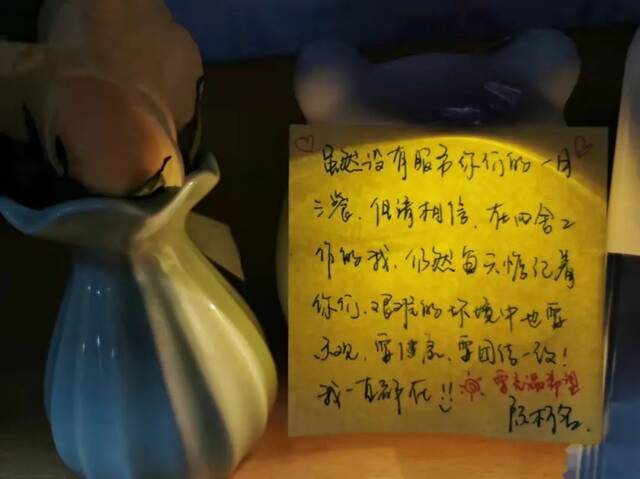 虽然没有服务你们的一日
三餐，但请相信，在四舍工
作的我，仍然每天惦记着
你们，艰难的环境中也要
乐观，要健康，要团结一致！
我一直都在！！要充满希望